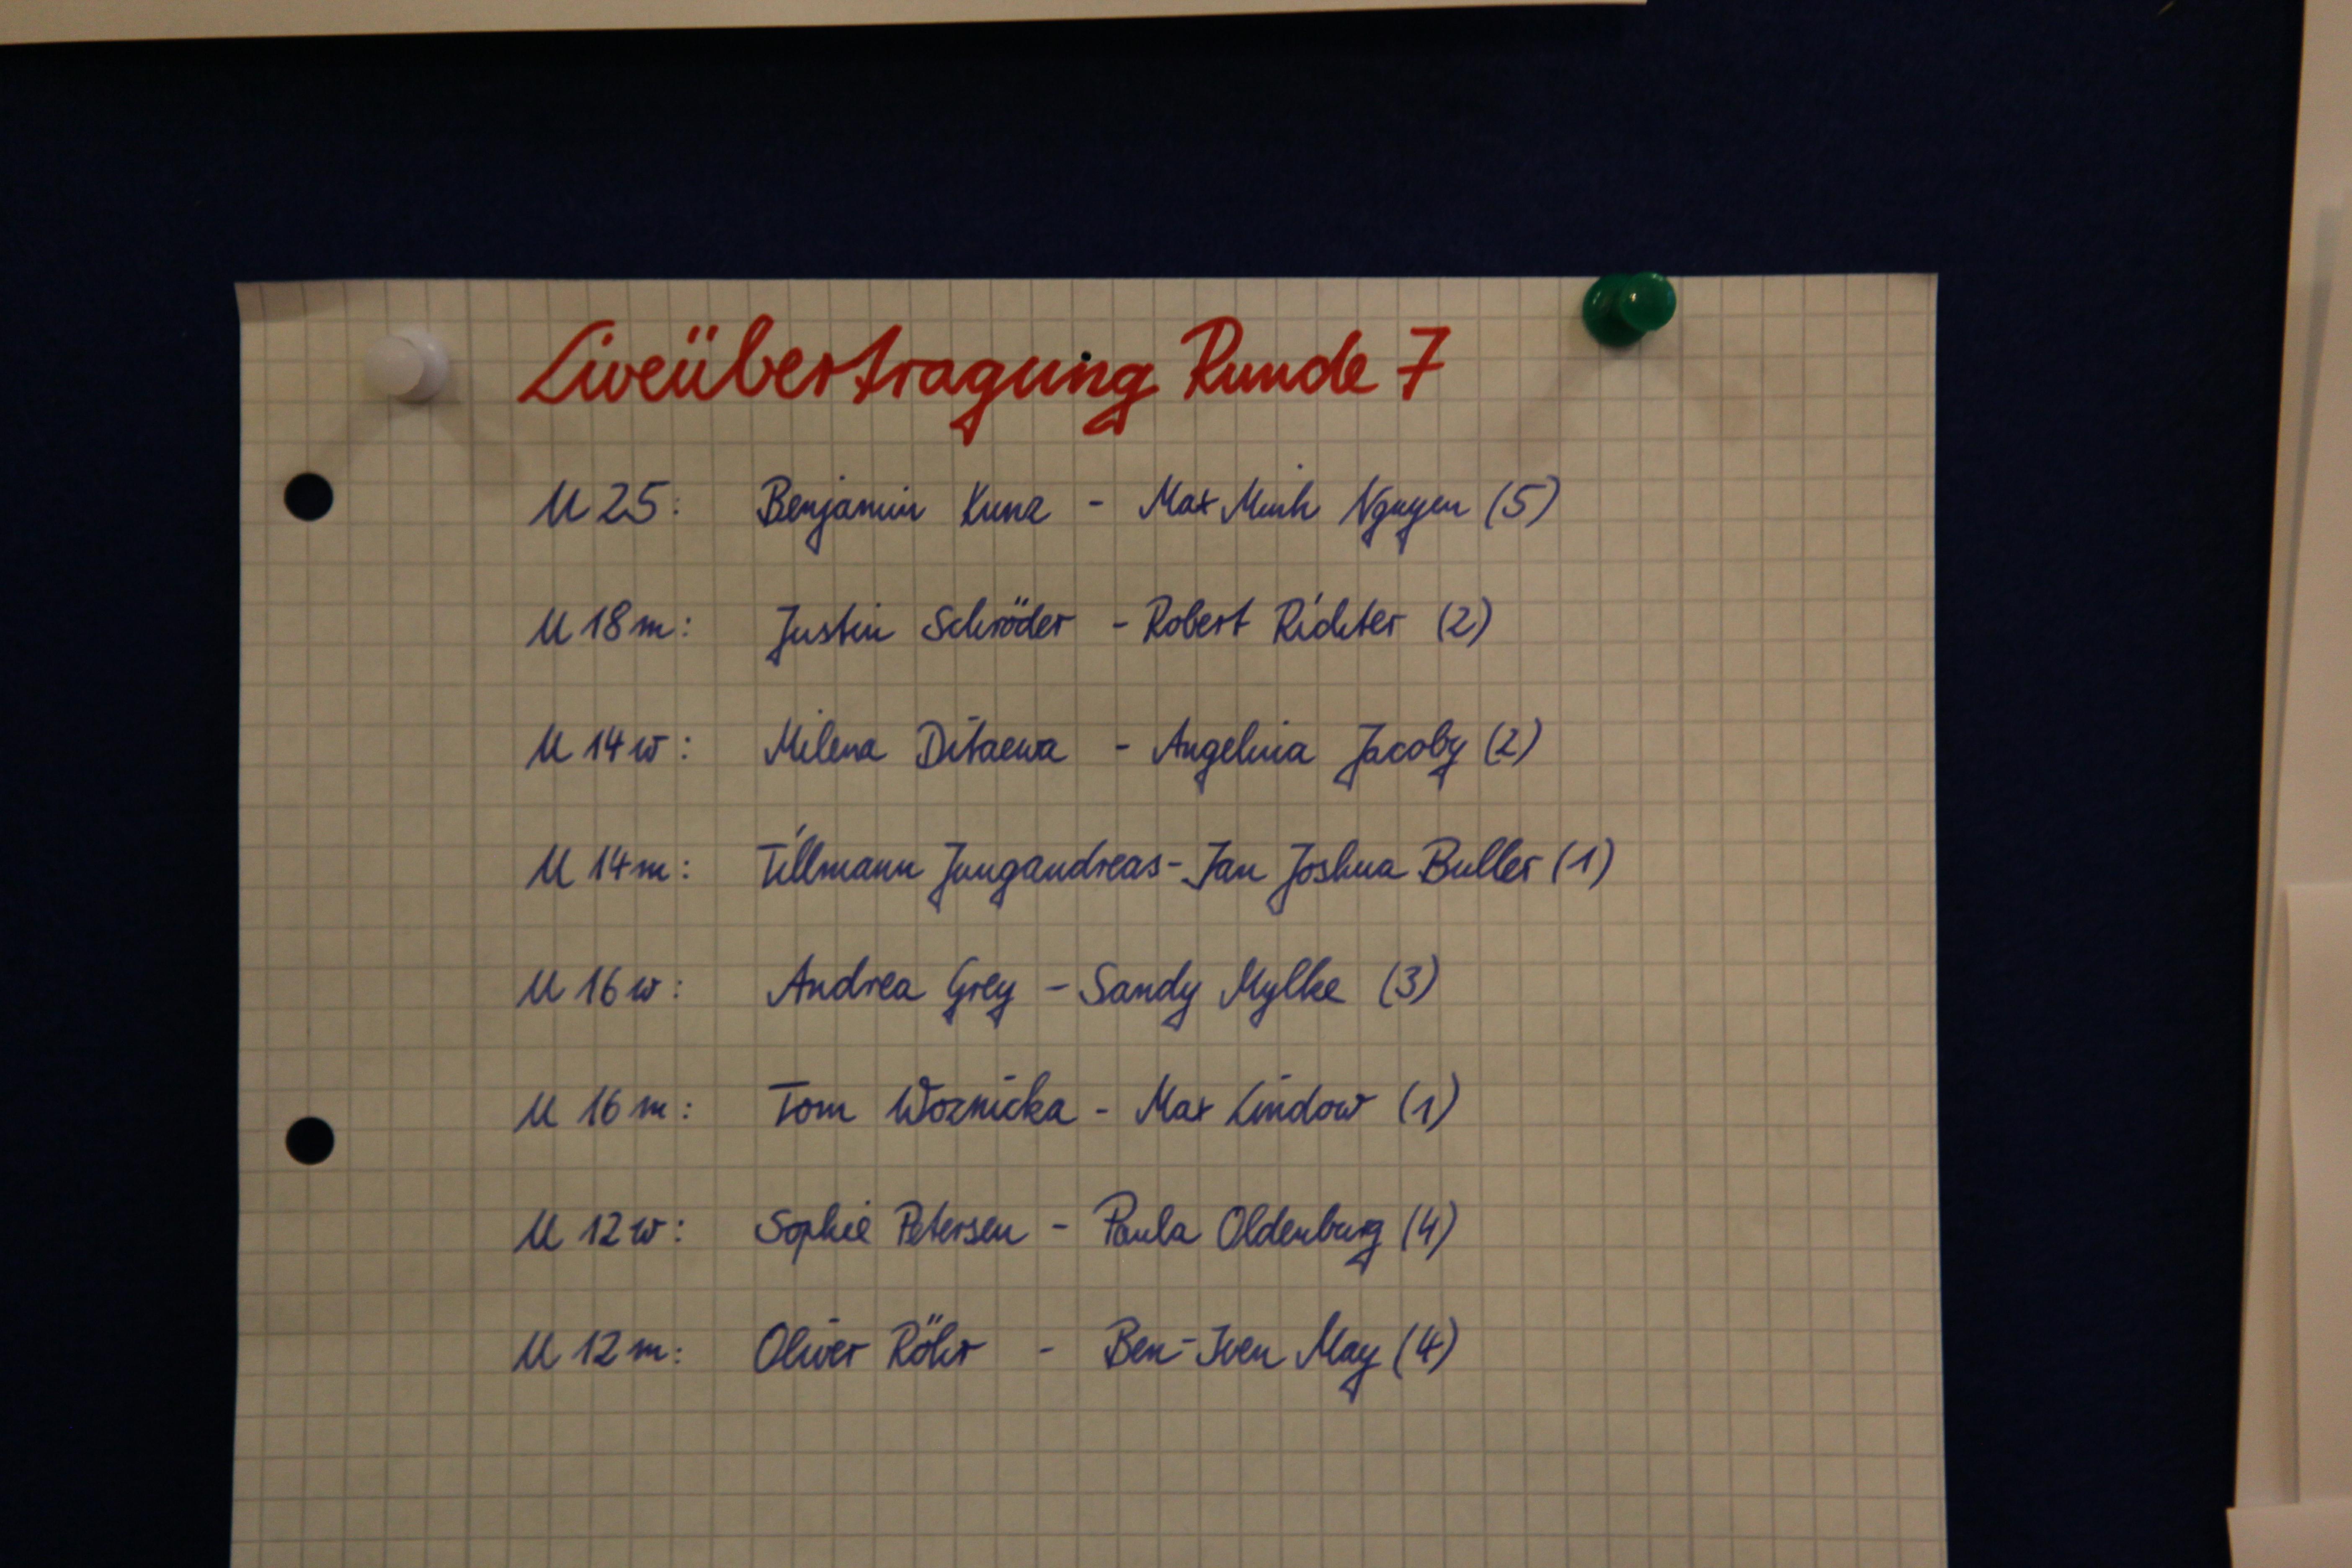 Liveübertragung Runde 7
U 25: Benjamin Kunz - Max Minh Nguyen (5)
U 18m: Justin Schröder - Robert Richter (2)
U 14w: Milena Ditaewa - Angelina Jacoby (2)
U 14m: Tillmann Jungandreas - Jan Joshua Buller (1)
U 16w: Andrea Grey - Sandy Mylke (3)
U 16m: Tom Woznicka - Max Lindow (1)
U 12w: Sophie Petersen - Paula Oldenburg (4)
U 12m: Oliver Röhr - Ben-Iven May (4)